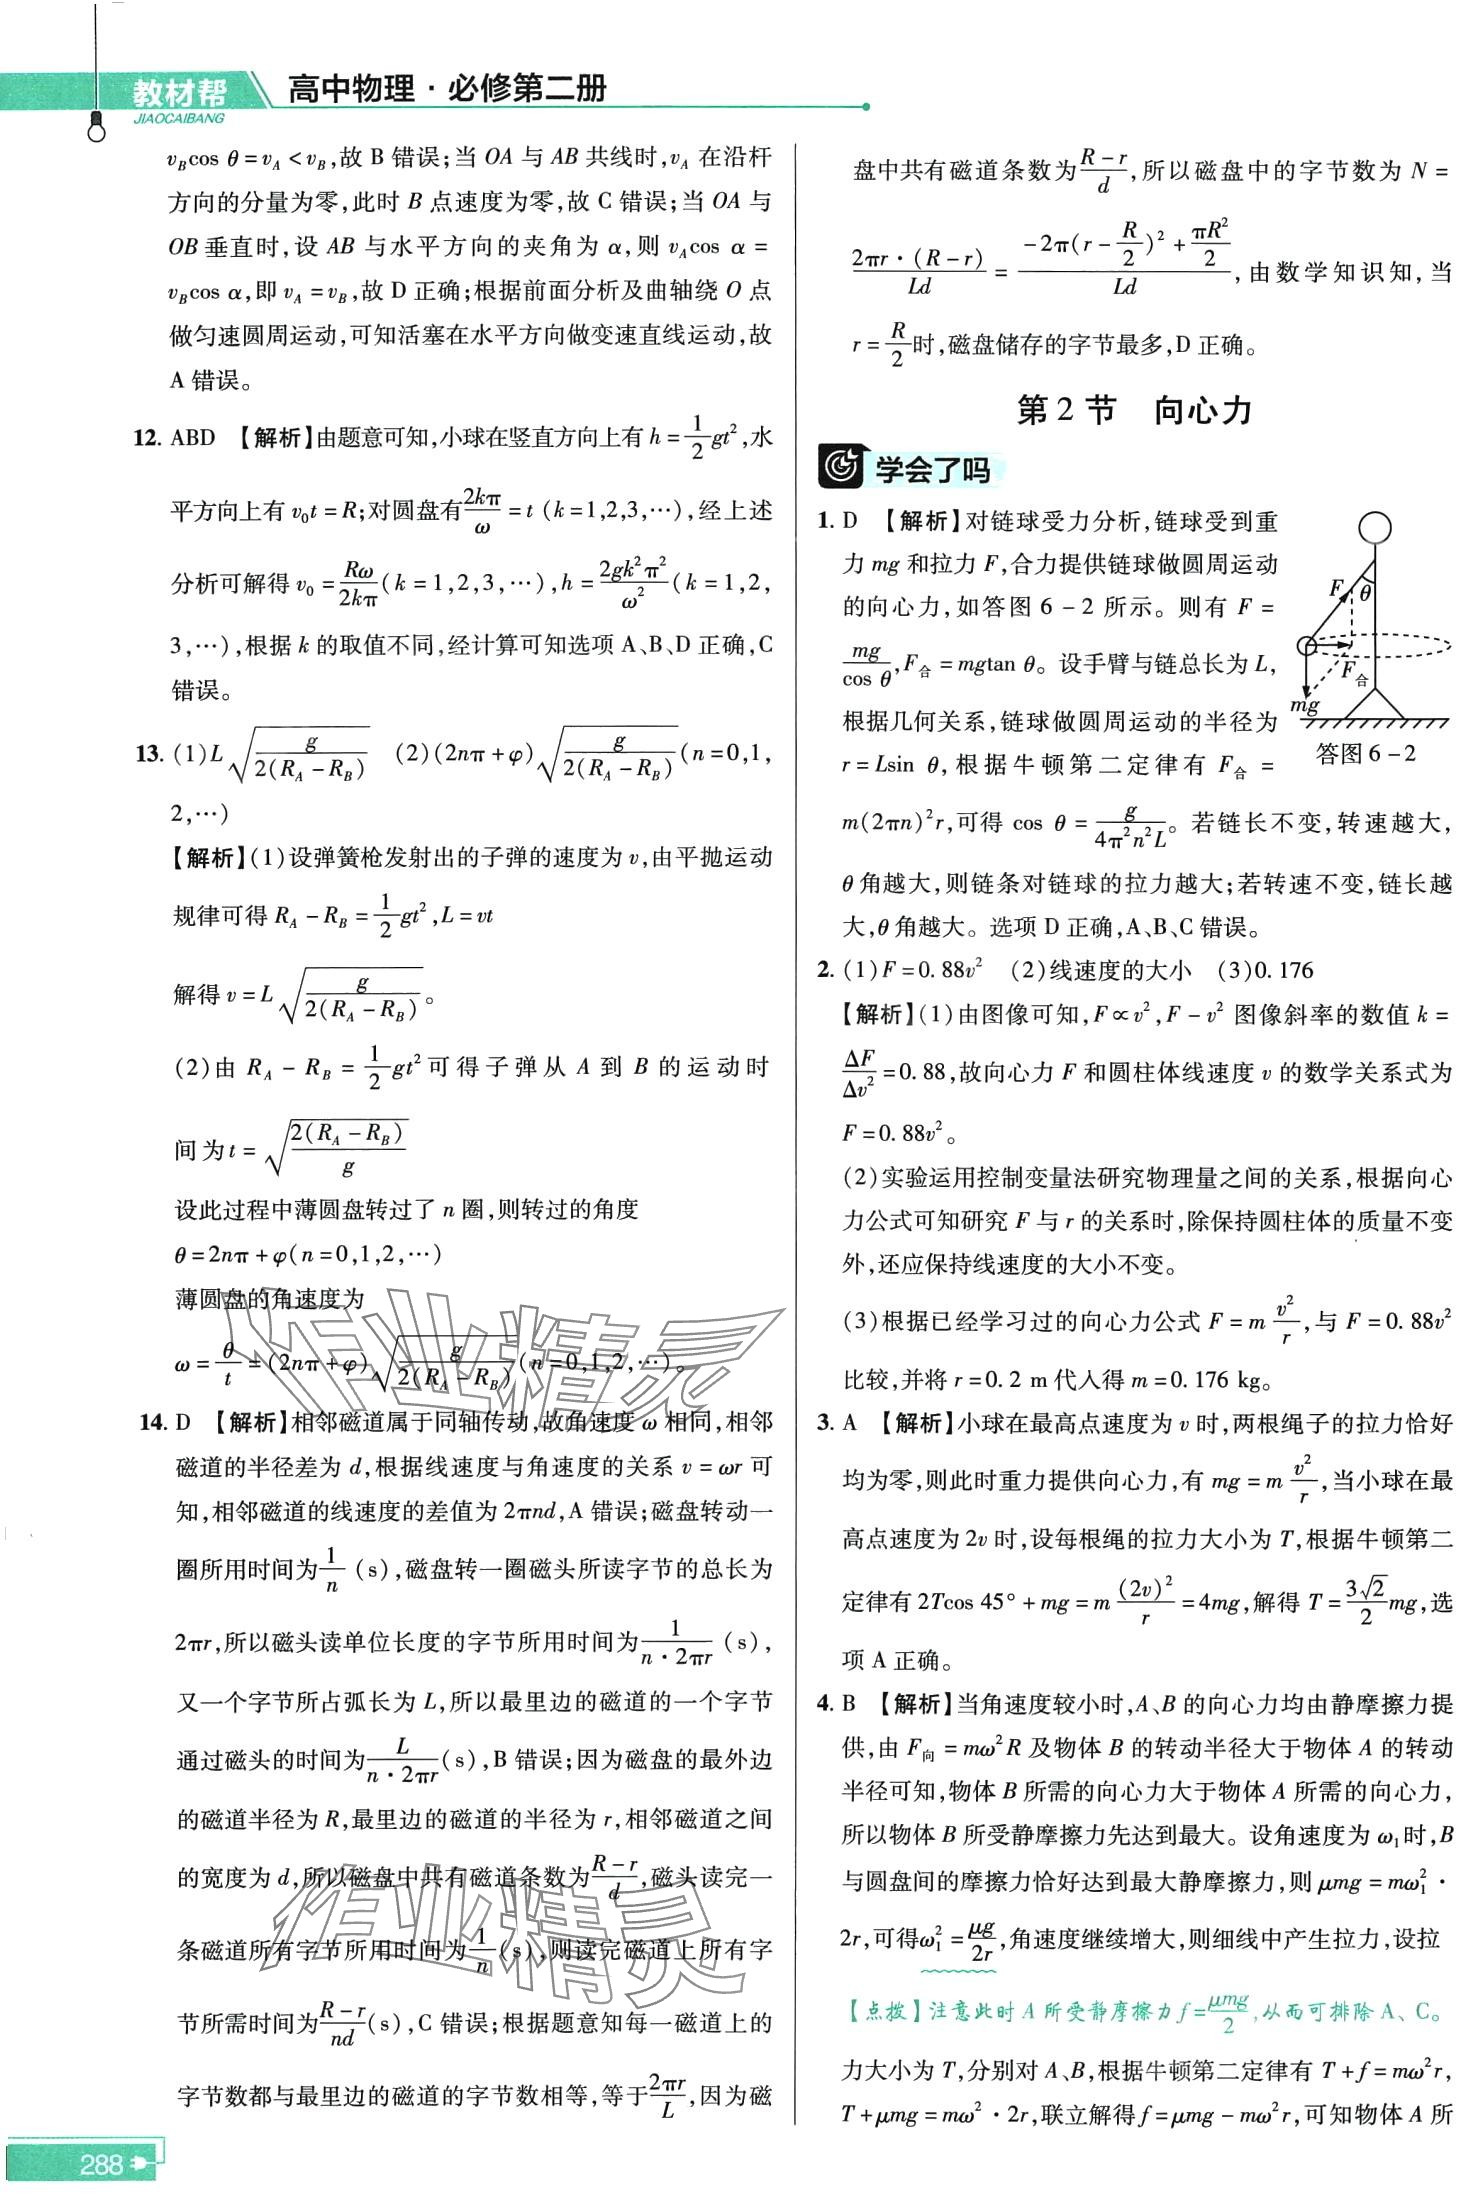 教材帮
JIAOCAIBANG
高中物理·必修第二册
v_B cos θ = v_A < v_B,故 B 错误;当 OA 与 AB 共线时,v_A 在沿杆
方向的分量为零,此时 B 点速度为零,故 C 错误;当 OA 与
OB 垂直时,设 AB 与水平方向的夹角为 α,则 v_A cos α =
v_B cos α,即 v_A = v_B,故 D 正确;根据前面分析及曲轴绕 O 点
做匀速圆周运动,可知活塞在水平方向做变速直线运动,故
A 错误。
12. ABD 【解析】由题意可知,小球在竖直方向上有 h = 1/2 gt²,水
平方向上有 v₀t = R;对圆盘有 2kπ/ω = t (k=1,2,3,…),经上述
分析可解得 v₀ = Rω/2kπ (k=1,2,3,…),h = 2gk²π²/ω² (k=1,2,
3,…),根据 k 的取值不同,经计算可知选项 A、B、D 正确,C
错误。
13. (1) L√(g/2(R_A - R_B)) (2) (2nπ+φ)√(g/2(R_A - R_B)) (n=0,1,
2,…)
【解析】(1)设弹簧枪发射出的子弹的速度为 v,由平抛运动
规律可得 R_A - R_B = 1/2 gt²,L = vt
解得 v = L√(g/2(R_A - R_B))。
(2)由 R_A - R_B = 1/2 gt² 可得子弹从 A 到 B 的运动时
间为 t = √(2(R_A - R_B)/g)
设此过程中薄圆盘转过了 n 圈,则转过的角度
θ = 2nπ + φ (n=0,1,2,…)
薄圆盘的角速度为
ω = θ/t = (2nπ+φ)√(g/2(R_A - R_B)) (n=0,1,2,…)。
14. D 【解析】相邻磁道属于同轴传动,故角速度 ω 相同,相邻
磁道的半径差为 d,根据线速度与角速度的关系 v = ωr 可
知,相邻磁道的线速度的差值为 2πnd,A 错误;磁盘转动一
圈所用时间为 1/n (s),磁盘转一圈磁头所读字节的总长为
2πr,所以磁头读单位长度的字节所用时间为 1/(n·2πr) (s),
又一个字节所占弧长为 L,所以最里边的磁道的一个字节
通过磁头的时间为 L/(n·2πr) (s),B 错误;因为磁盘的最外边
的磁道半径为 R,最里边的磁道的半径为 r,相邻磁道之间
的宽度为 d,所以磁盘中共有磁道条数为 (R-r)/d,磁头读完一
条磁道所有字节所用时间为 1/n (s),则读完磁道上所有字
节所需时间为 (R-r)/nd (s),C 错误;根据题意知每一磁道上的
字节数都与最里边的磁道的字节数相等,等于 2πr/L,因为磁
288
盘中共有磁道条数为 (R-r)/d,所以磁盘中的字节数为 N =
2πr·(R-r)/Ld = (-2π(r - R/2)² + πR²/2)/Ld,由数学知识知,当
r = R/2 时,磁盘储存的字节最多,D 正确。
第 2 节 向心力
学会了吗
1. D 【解析】对链球受力分析,链球受到重
力 mg 和拉力 F,合力提供链球做圆周运动
的向心力,如答图 6-2 所示。则有 F =
mg/cos θ,F合 = mgtan θ。设手臂与链总长为 L,
根据几何关系,链球做圆周运动的半径为
r = Lsin θ,根据牛顿第二定律有 F合 =
F
θ
F合
mg
答图 6-2
m(2πn)²r,可得 cos θ = g/4π²n²L。若链长不变,转速越大,
θ 角越大,则链条对链球的拉力越大;若转速不变,链长越
大,θ 角越大。选项 D 正确,A、B、C 错误。
2. (1) F = 0.88v² (2)线速度的大小 (3)0.176
【解析】(1)由图像可知,F∝v²,F-v² 图像斜率的数值 k =
ΔF/Δv² = 0.88,故向心力 F 和圆柱体线速度 v 的数学关系式为
F = 0.88v²。
(2)实验运用控制变量法研究物理量之间的关系,根据向心
力公式可知研究 F 与 r 的关系时,除保持圆柱体的质量不变
外,还应保持线速度的大小不变。
(3)根据已经学习过的向心力公式 F = m v²/r,与 F = 0.88v²
比较,并将 r = 0.2 m 代入得 m = 0.176 kg。
3. A 【解析】小球在最高点速度为 v 时,两根绳子的拉力恰好
均为零,则此时重力提供向心力,有 mg = m v²/r,当小球在最
高点速度为 2v 时,设每根绳的拉力大小为 T,根据牛顿第二
定律有 2Tcos 45° + mg = m (2v)²/r = 4mg,解得 T = 3√2/2 mg,选
项 A 正确。
4. B 【解析】当角速度较小时,A、B 的向心力均由静摩擦力提
供,由 F向 = mω²R 及物体 B 的转动半径大于物体 A 的转动
半径可知,物体 B 所需的向心力大于物体 A 所需的向心力,
所以物体 B 所受静摩擦力先达到最大。设角速度为 ω₁时,B
与圆盘间的摩擦力恰好达到最大静摩擦力,则 μmg = mω₁²·
2r,可得 ω₁² = μg/2r,角速度继续增大,则细线中产生拉力,设拉
【点拨】注意此时 A 所受静摩擦力 f = μmg/2,从而可排除 A、C。
力大小为 T,分别对 A、B,根据牛顿第二定律有 T + f = mω²r,
T + μmg = mω²·2r,联立解得 f = μmg - mω²r,可知物体 A 所
作业精灵
作业精灵